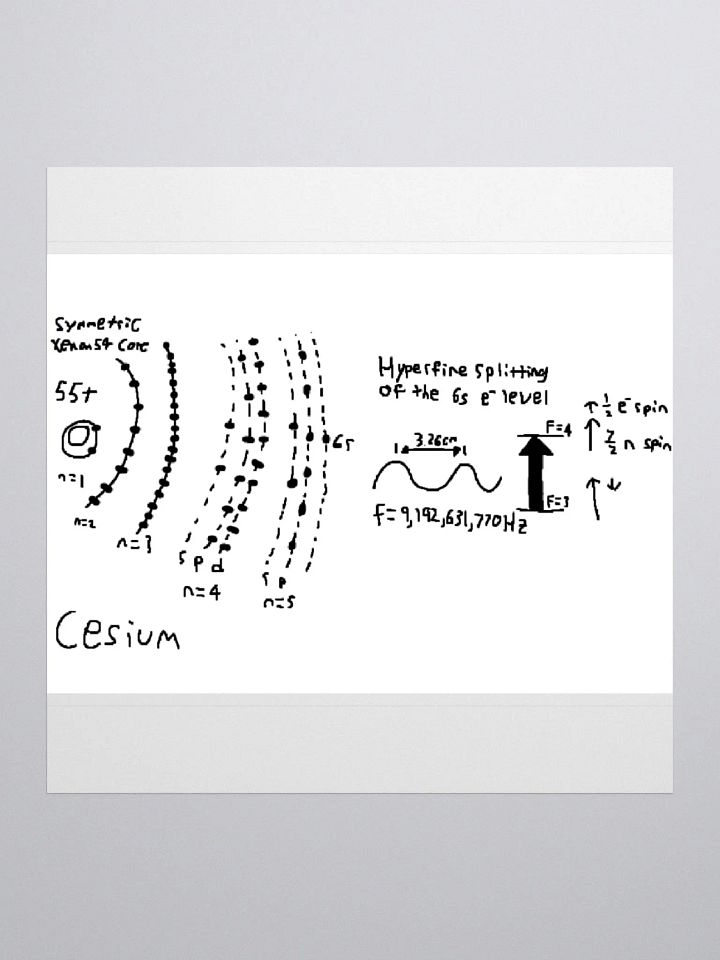 Symmetric
Xenon54 Core
55+
n=1
n=2
n=3
s p d
n=4
s p
n=5
6s
Cesium
Hyperfine Splitting
of the 6s e⁻ level
3.26cm
f=9,192,631,770Hz
F=4
F=3
↑ ½ e⁻ spin
↑ 7/2 n spin
↑ ↓